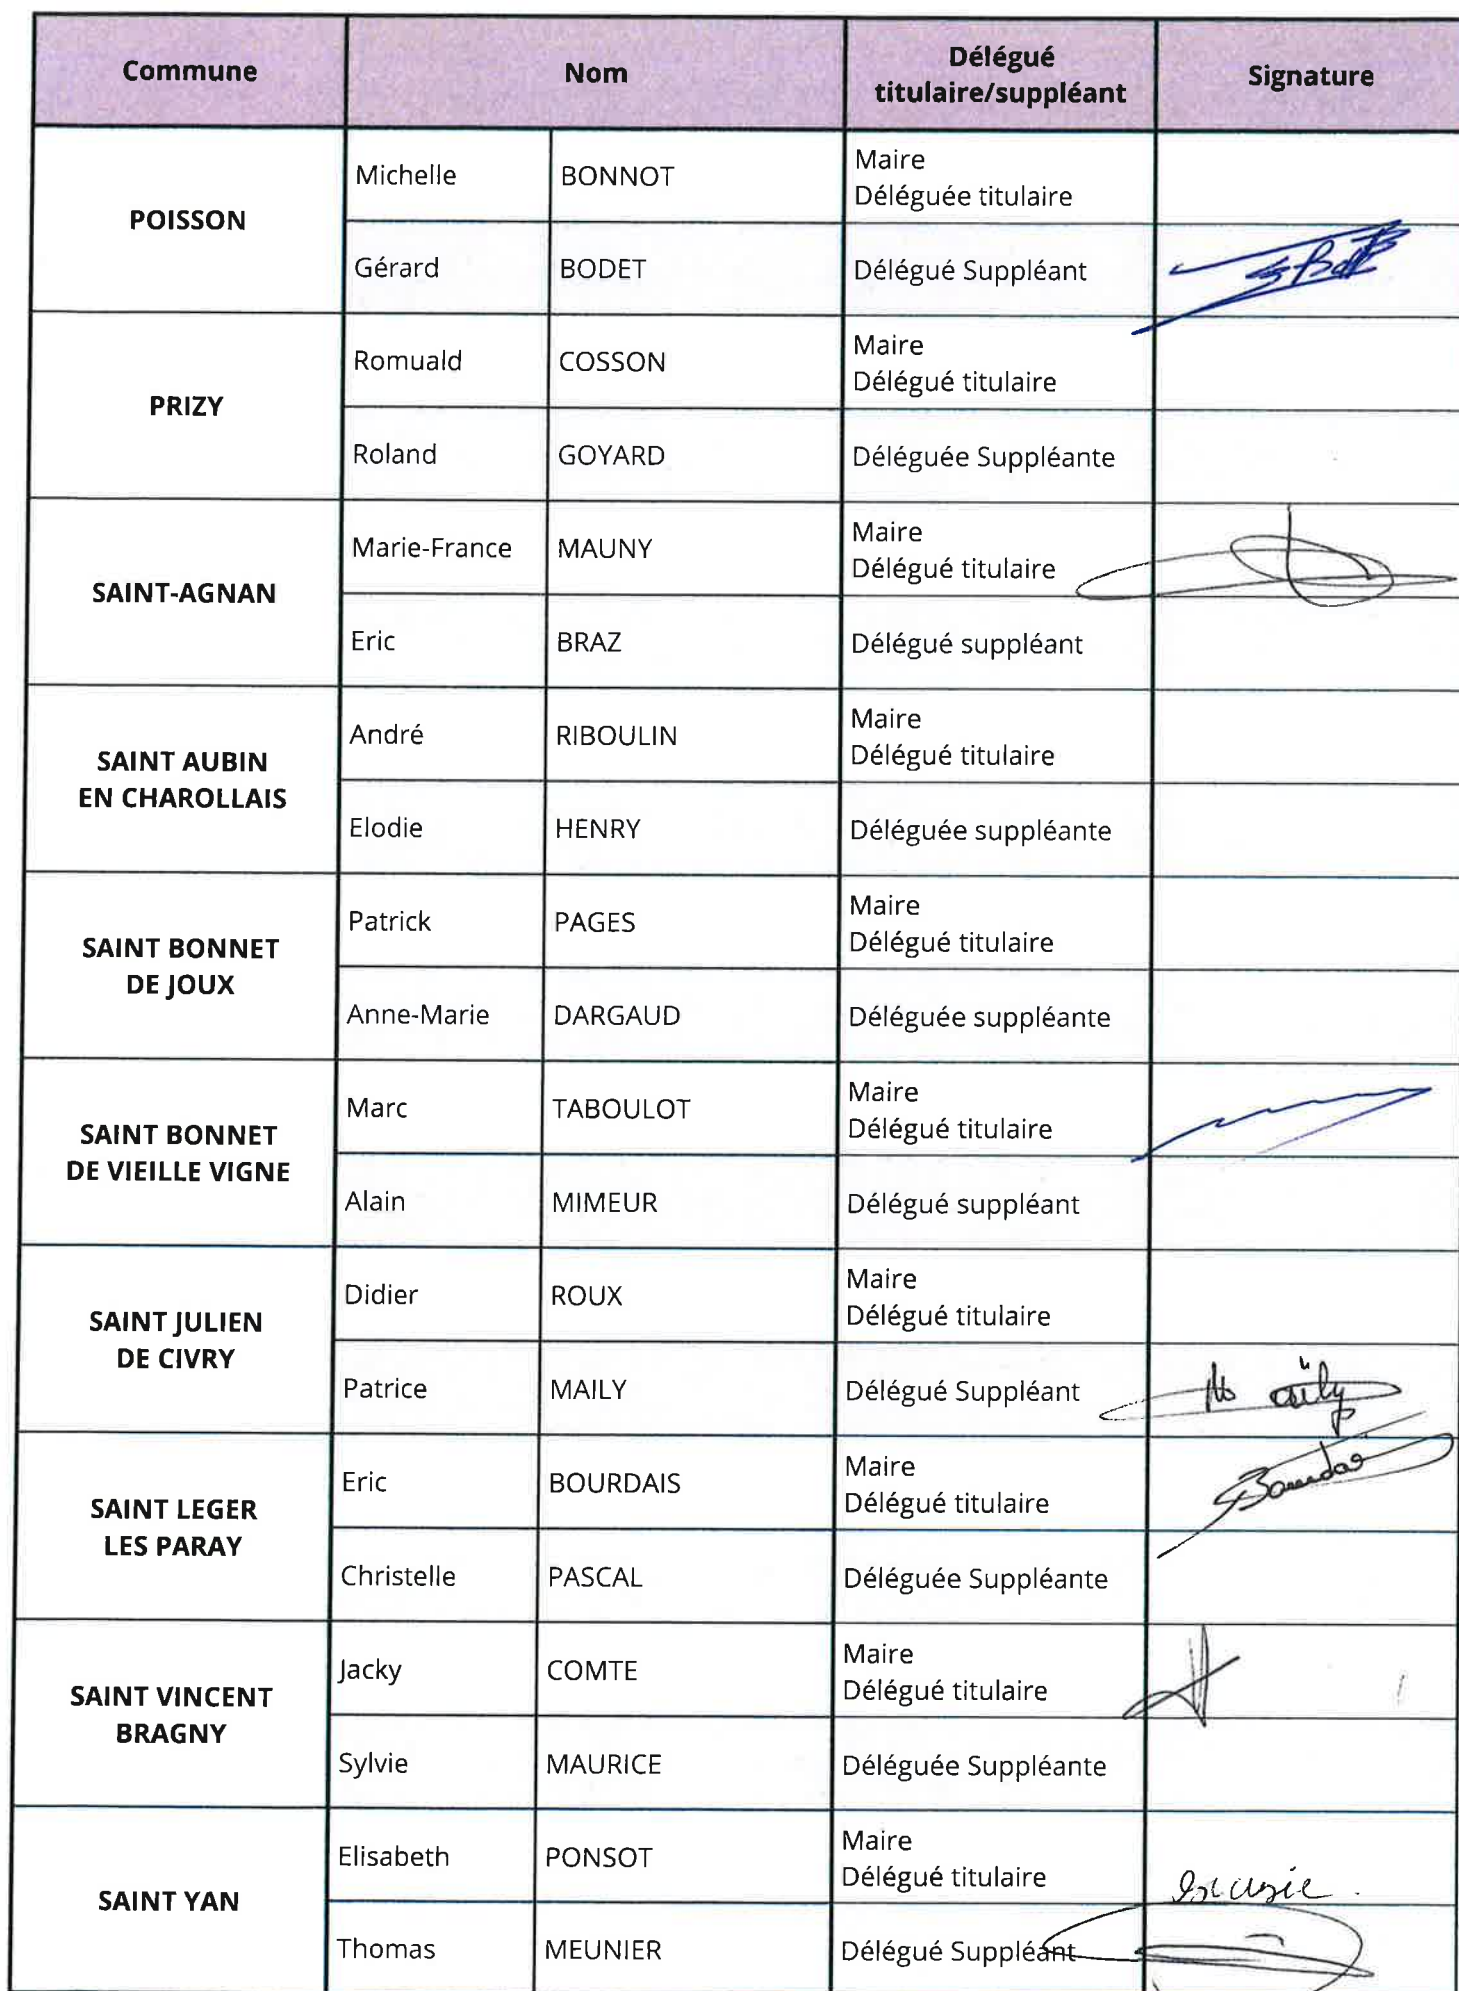 Commune Nom Délégué titulaire/suppléant Signature
POISSON
Michelle BONNOT Maire
Déléguée titulaire
Gérard BODET Délégué Suppléant
PRIZY
Romuald COSSON Maire
Délégué titulaire
Roland GOYARD Déléguée Suppléante
SAINT-AGNAN
Marie-France MAUNY Maire
Délégué titulaire
Eric BRAZ Délégué suppléant
SAINT AUBIN
EN CHAROLLAIS
André RIBOULIN Maire
Délégué titulaire
Elodie HENRY Déléguée suppléante
SAINT BONNET
DE JOUX
Patrick PAGES Maire
Délégué titulaire
Anne-Marie DARGAUD Déléguée suppléante
SAINT BONNET
DE VIEILLE VIGNE
Marc TABOULOT Maire
Délégué titulaire
Alain MIMEUR Délégué suppléant
SAINT JULIEN
DE CIVRY
Didier ROUX Maire
Délégué titulaire
Patrice MAILY Délégué Suppléant Maïly
SAINT LEGER
LES PARAY
Eric BOURDAIS Maire
Délégué titulaire
Christelle PASCAL Déléguée Suppléante
SAINT VINCENT
BRAGNY
Jacky COMTE Maire
Délégué titulaire
Sylvie MAURICE Déléguée Suppléante
SAINT YAN
Elisabeth PONSOT Maire
Délégué titulaire excusée
Thomas MEUNIER Délégué Suppléant